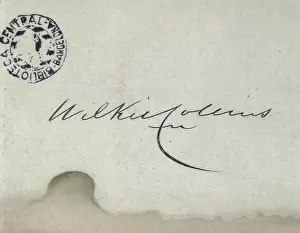 BIBLIOTECA CENTRAL
BARCELONA
Wilkie Collins